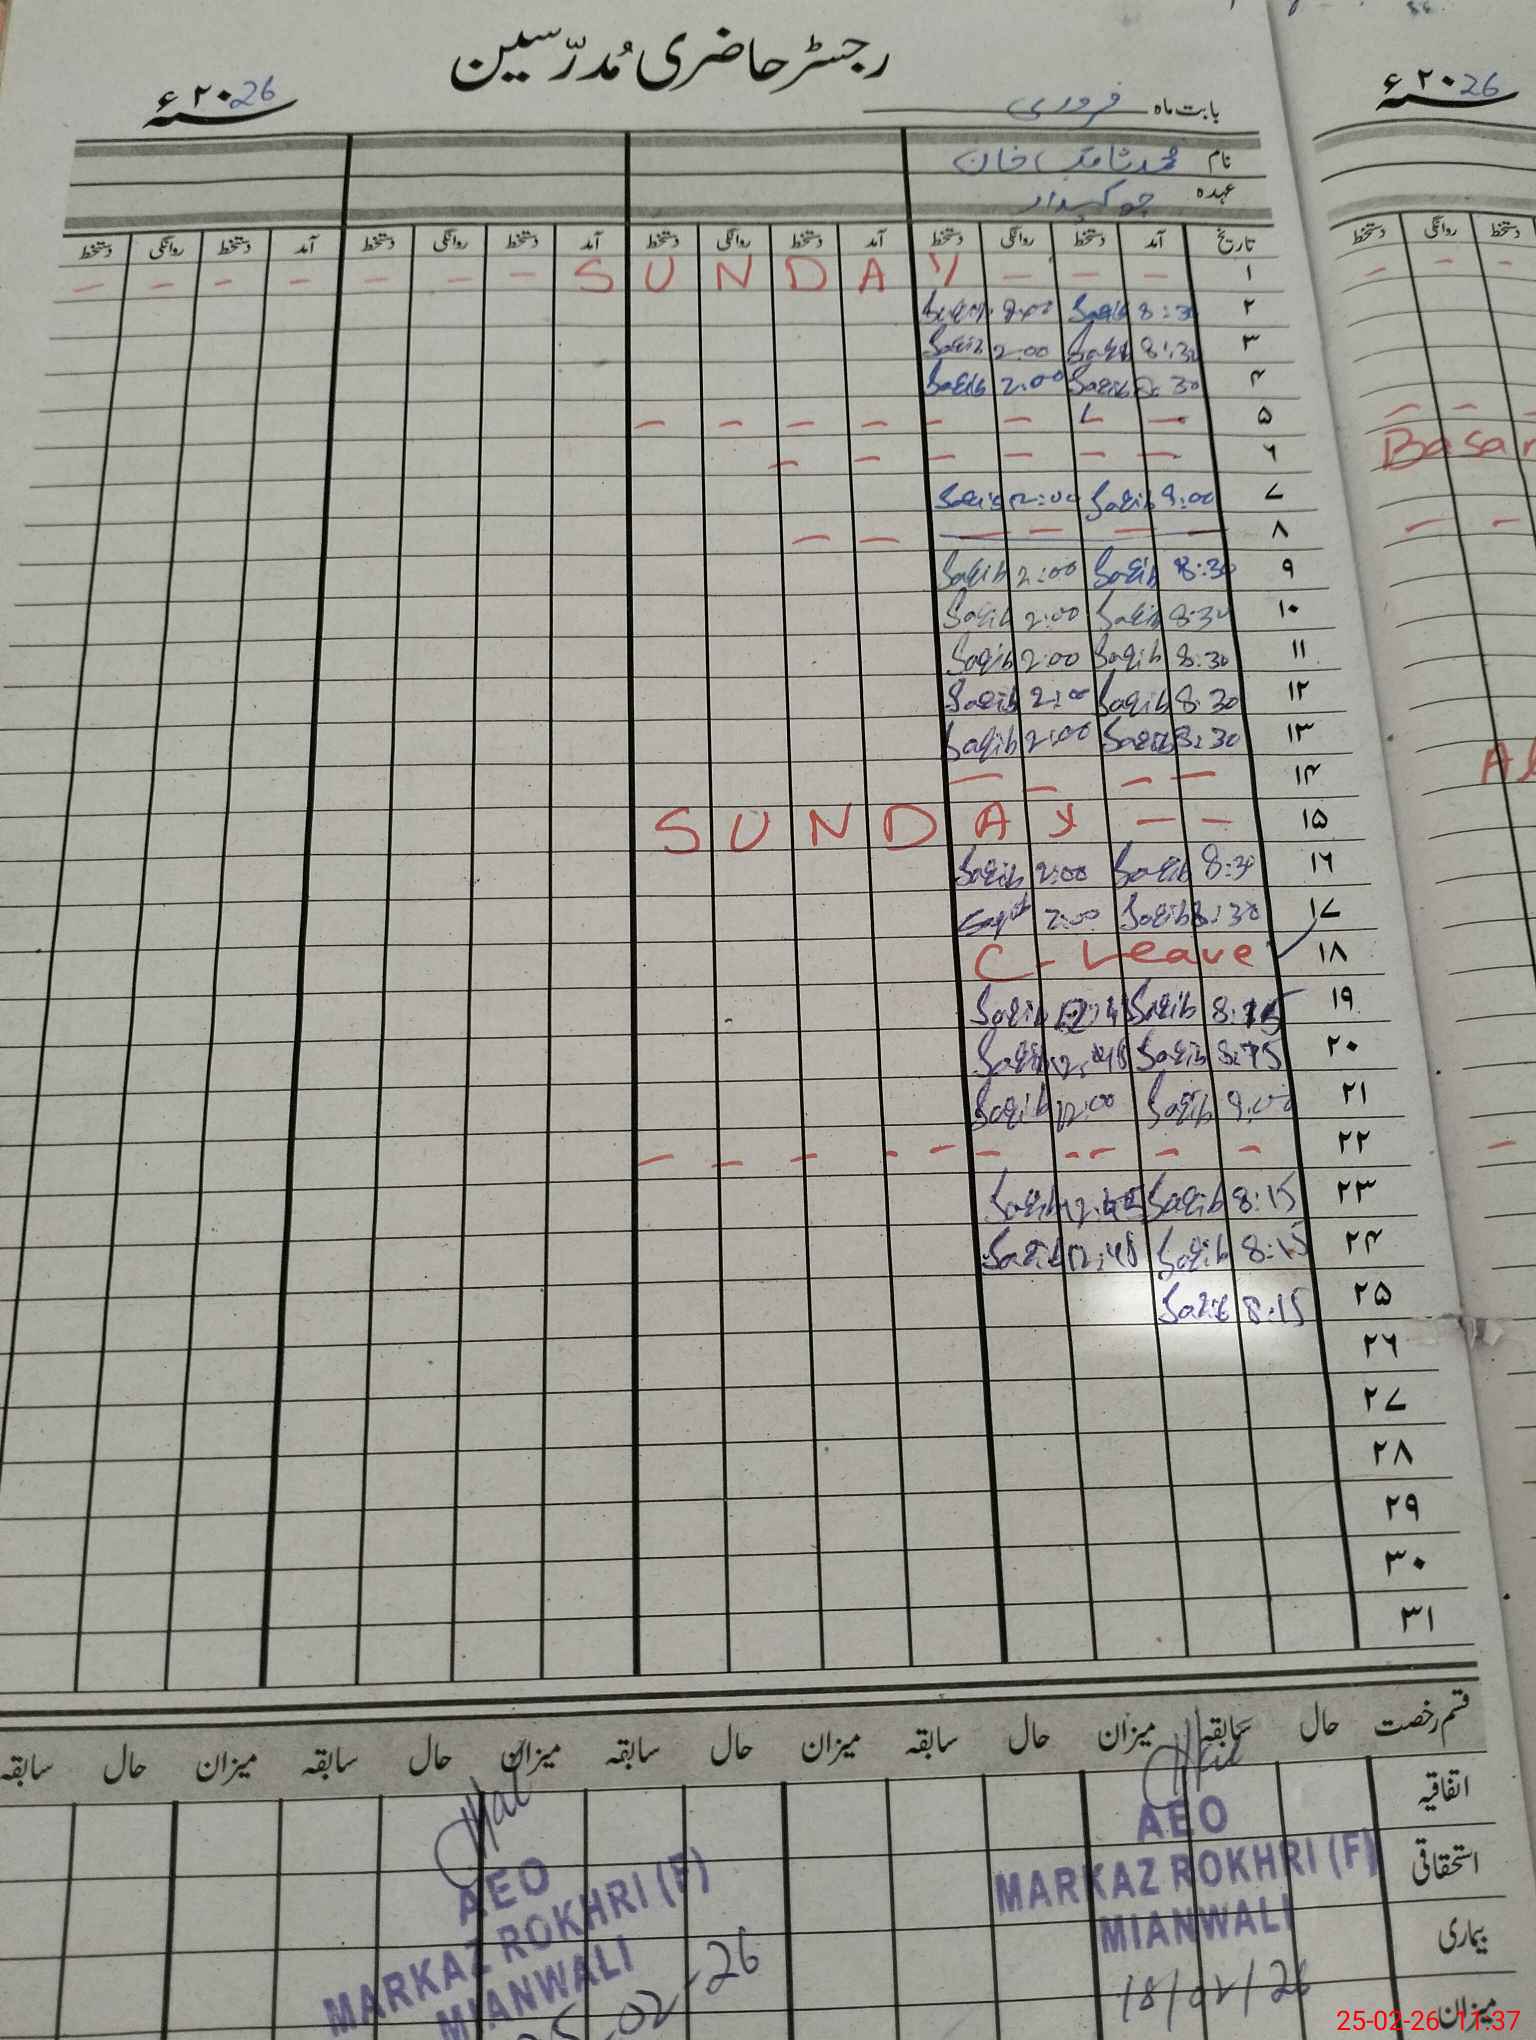 رجسٹر حاضری مُدرّسین
۲۰26ء
۲۰26ء
بابت ماہ فروری
نام محمد ثاقب خان
عہدہ چوکیدار
تاریخ آمد دستخط روانگی دستخط آمد دستخط روانگی دستخط آمد دستخط روانگی دستخط آمد دستخط روانگی دستخط
دستخط روانگی دستخط
۱ - - - SUNDAY - - - - - - -
۲ 8:30 Saqib
۳ 8:30 Saqib 2:00 Saqib
۴ 8:30 Saqib 2:00 Saqib
۵ - L - - - - - -
۶ - - - - - -
Basan
۷ 9:00 Saqib 12:00 Saqib
۸ - - - - -
۹ 8:30 Saqib 2:00 Saqib
۱۰ 8:30 Saqib 2:00 Saqib
۱۱ 8:30 Saqib 2:00 Saqib
۱۲ 8:30 Saqib 2:00 Saqib
۱۳ 8:30 Saqib 2:00 Saqib
۱۴ - - - -
۱۵ - - SUNDAY
۱۶ 8:30 Saqib 2:00 Saqib
۱۷ 8:30 Saqib 2:00
۱۸ C-Leave
۱۹ 8:15 Saqib Saqib
۲۰ Saqib 12:45 Saqib
۲۱ 9:00 Saqib 12:00 Saqib
۲۲ - - - - - - - - -
۲۳ 8:15 Saqib 12:45 Saqib
۲۴ 8:15 Saqib 12:45 Saqib
۲۵ 8:15 Saqib
۲۶
۲۷
۲۸
۲۹
۳۰
۳۱
قسم رخصت حال سابقہ میزان حال سابقہ میزان حال سابقہ میزان حال سابقہ میزان حال سابقہ
اتفاقیہ
استحقاقی
بیماری
میزان
AEO
MARKAZ ROKHRI (F)
MIANWALI
18/02/26
AEO
MARKAZ ROKHRI (F)
MIANWALI
25-02-26
25-02-26 11:37